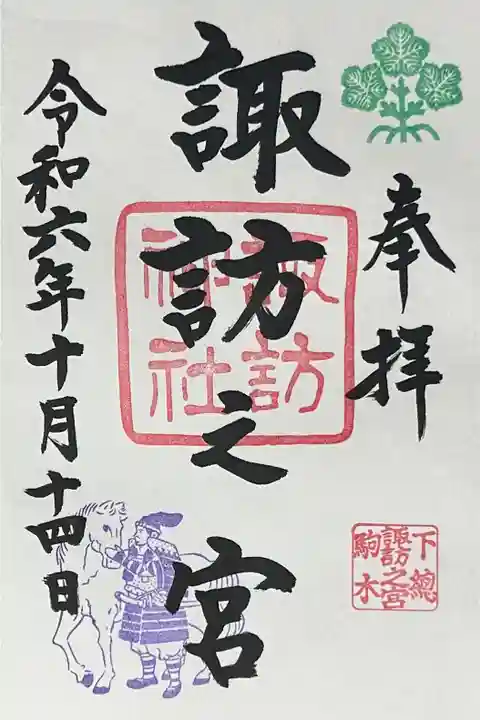 奉拝
諏訪之宮
令和六年十月十四日
諏訪
神社
下總
諏訪之宮
駒木